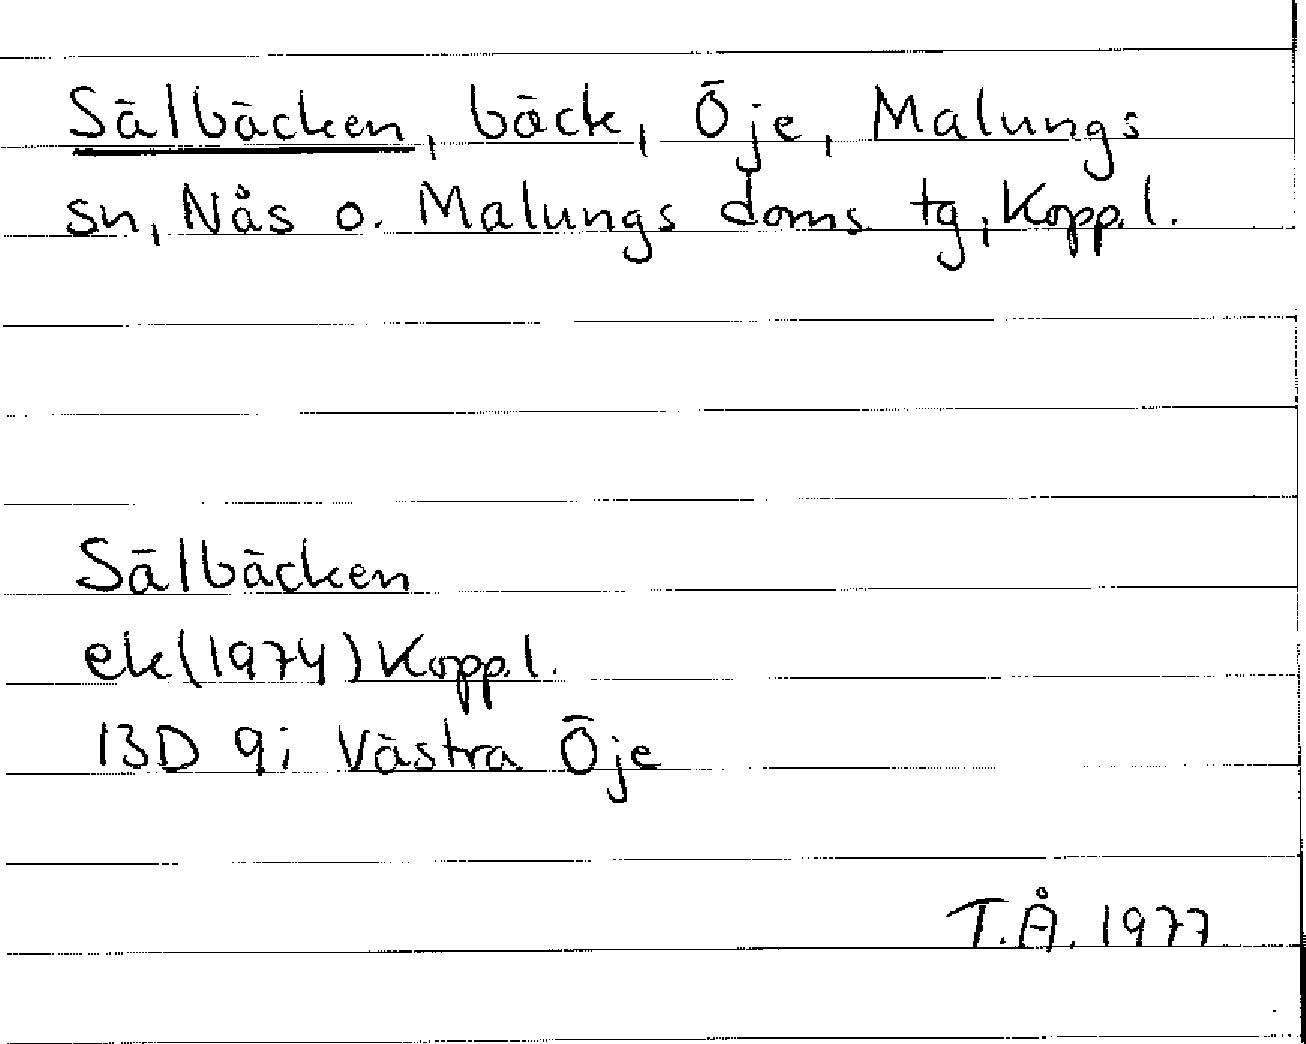 Sälbäcken, bäck, Öje, Malungs
sn, Nås o. Malungs doms. tg, Kopp.l.
Sälbäcken
ek(1974) Kopp.l.
13D 9i Västra Öje
T.Å. 1977